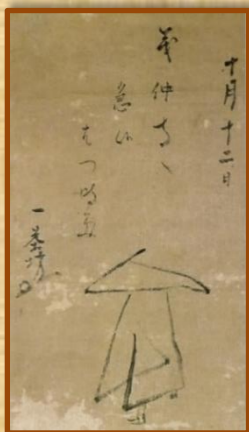 十月十二日
義仲寺へ
急候
はつ時雨
一茶坊